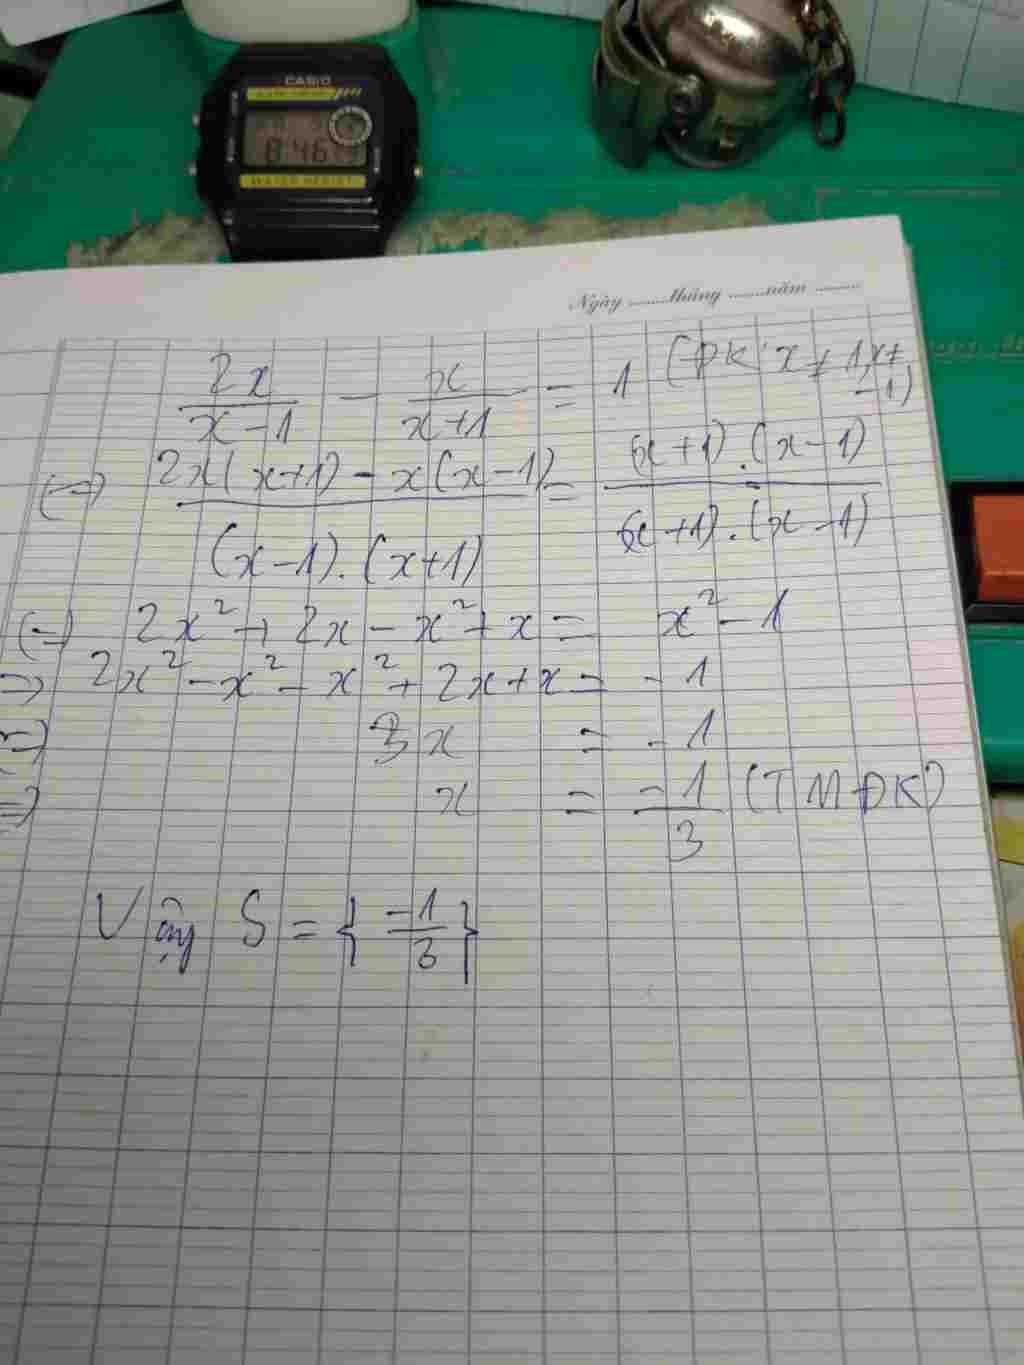 CASIO
8:46
WATER RESIST
Ngày ........tháng ........năm ..........
2x/(x-1) - x/(x+1) = 1 (ĐK x ≠ 1, x ≠ -1)
(=) (2x(x+1) - x(x-1))/((x-1).(x+1)) = ((x+1).(x-1))/((x+1).(x-1))
(=) 2x² + 2x - x² + x = x² - 1
=) 2x² - x² - x² + 2x + x = -1
=) 3x = -1
=) x = -1/3 (TMĐK)
Vậy S = {-1/3}